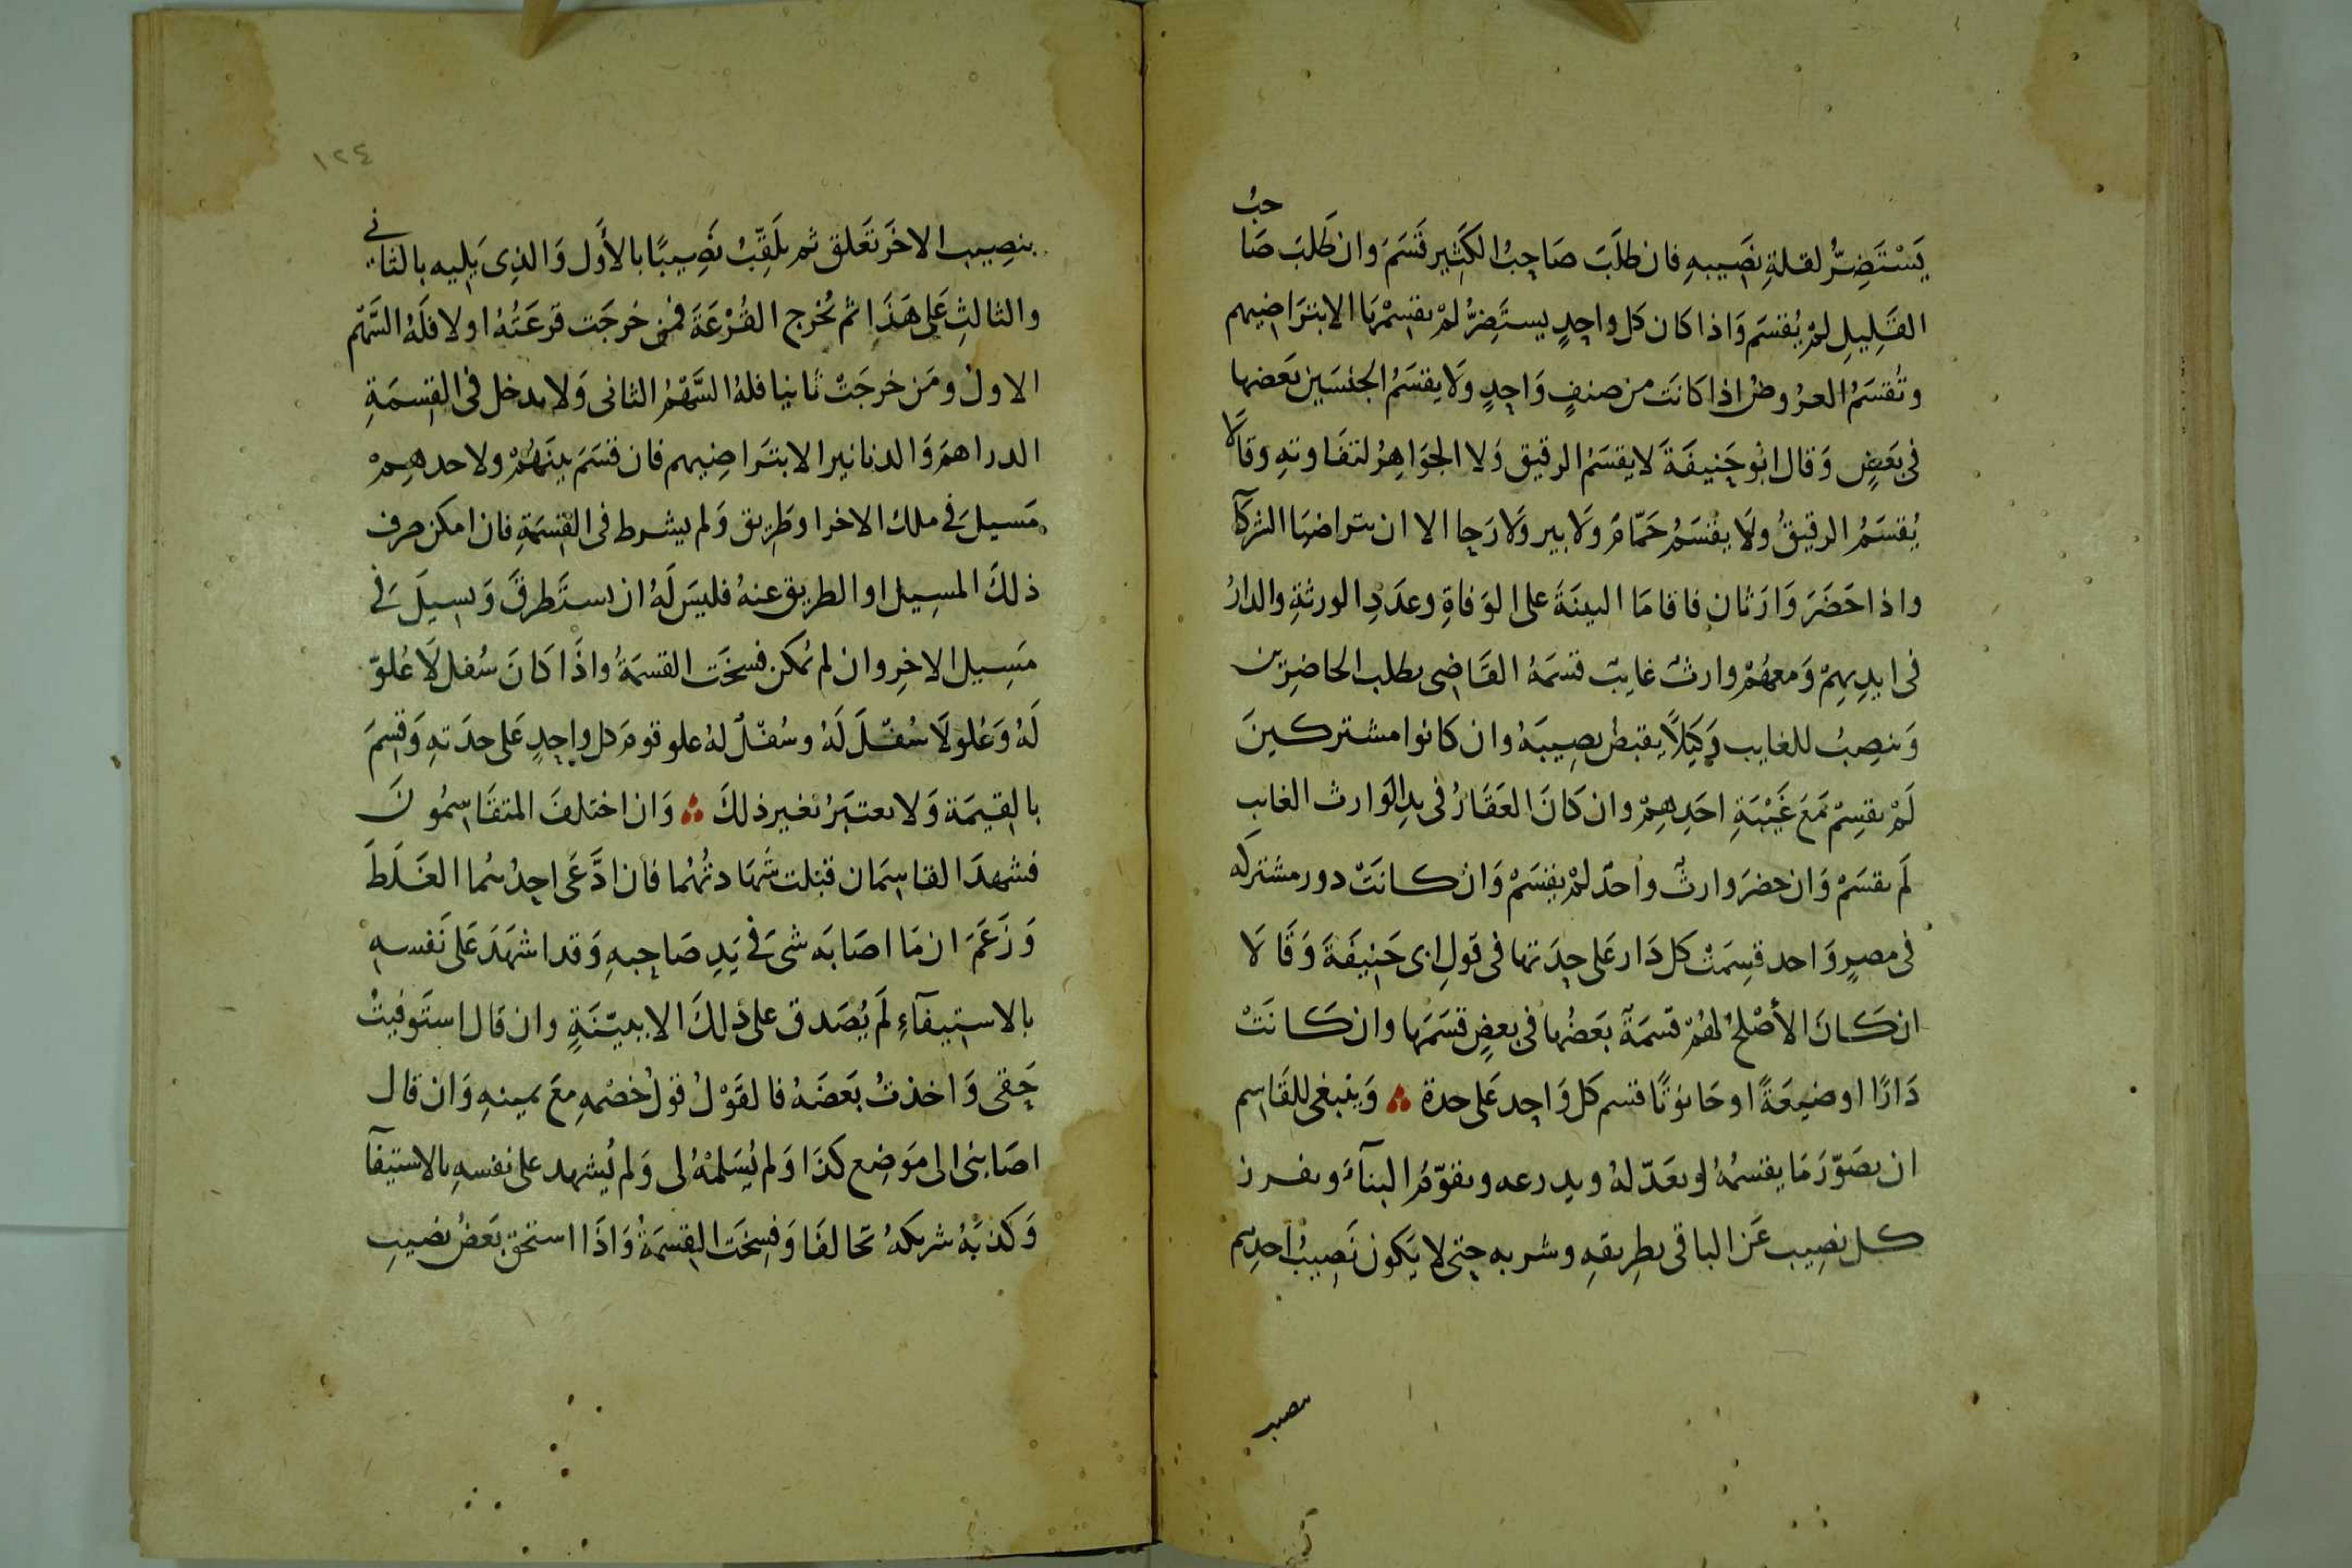 يَسْتَضِرُّ لقلةِ نَصِيبهِ فان طلَبَ صَاحِبُ الكَثِير قَسَمَ وان طَلبَ صَاحبُ
القَلِيلِ لمْ يُقسَم وَاذا كان كل واحِدٍ يستَضِرُّ لمْ يقسمْهَا الا بترَاضِيهم
وتُقسَمُ العرُوضُ اذا كانَت من صنفٍ وَاحِدٍ وَلَا يقسَمُ الجنسَين بَعضها
فى بَعَضٍ وَقال ابُو حَنِيفَةَ لا يقسَمُ الرقيق وَلا الجوَاهِرُ لتفَاوتهِ وقالَا
يُقسَمُ الرقيقُ ولَا يقْسَمُ حَمّامَ ولَا بير وَلَا رَحا الا ان يتراضَا الشركآ
واذا حَضَرَ وَارَثانِ فاقامَا البينَةَ على الوَفاةِ وعدَدِ الورثةِ والدارُ
فى ايدِيهِمْ وَمعهُمْ وارثٌ غايبٌ قسمَهُ القَاضِى بطلب الحاضِرِين
وَينصِبُ للغايب وَكِيلًا يقبضُ نصِيبَهُ وان كانوا مشتركينَ
لَمْ يقسِمْ مَعَ غَيْبَةِ احَدِهِمْ وان كَانَ العَقَارُ فى يدِ الوَارث الغايب
لَم يقسَمْ وَان حضرَ وارثٌ واحدٌ لمْ يقسَمْ وَان كانَتْ دور مشتركه
فى مصرٍ وَاحد قسِمَتْ كل دَار عَلى حِدَتها فى قولِ ابى حَنِيفَةَ وَقَالَا
ان كَانَ الأصْلحُ لهُمْ قسمَةَ بَعَضُها فى بعضٍ قسَمَها وان كَانَتْ
دَارًا اوضيعَةً اوحَانوتًا قسم كل وَاحِد عَلى حدة ؞ وَينبغى للقَاسِم
ان يصَوّرَ مَا يقسمُهُ او يعَدّلهُ ويدرعه ويقوّمُ البنآءَ ويفرز
كل نصِيب عَن الباقى بطرِيقهِ وشربه حتى لا يَكون نَصِيبُ احدِهم
نصيب
١٢٤
بنصِيب الاخَر تعَلق ثم يلَقِّبُ نَصِيبًا بالأَول وَالذِى يَلِيه بالثانى
والثالثِ عَلى هَذَا ثم تُخرج القُرْعَةَ فمن خرجَت قرعَتُهُ اولا فلَهُ السَّهم
الاول ومَن خرجَتْ ثانيا فلهُ السَّهْمُ الثانى وَلا يدخل فى القِسمَةِ
الدراهمَ وَالدنانير الا بترَاضِيهم فان قسَمَ بينَهُمْ ولاحدهِمْ
مَسيل فى ملك الاخر اوطَرِيق وَلم يشرط فى القِسمَةِ فان امكن صرف
ذلكَ المسِيل او الطريق عنهُ فليسَ لَهُ ان يستَطرقَ وَيسِيلَ فى
مَسِيل الاخِر وان لم يُمكن فسخَت القسمَةُ واذَا كَانَ سُفل لَا عُلوّ
لَهُ وَعُلو لَا سُفلَ لَهُ وسُفلٌ لهُ علو قومَ كل واحِدٍ عَلى حدَتهِ وَقسِمَ
بالقِيمَة وَلا يعتبَرُ بغير ذلكَ ؞ وَان اختلفَ المتقَاسِمُونَ
فشهدَ القاسِمَان قبلت شَهَادتُهُما فان ادَّعَى احِدُهُما الغَلَطَ
وَزَعَمَ ان مَا اصَابَه شىَ فى يَدِ صَاحِبهِ وَقد اشهَدَ عَلى نَفسهِ
بالاستِيفآءِ لَم يُصَدق على ذلكَ الا ببيّنَةٍ وان قال استَوفيتُ
حَقى وَاخذتُ بَعَضَهُ فالقَوْلُ قولُ خصْمهِ مَعَ يمينهِ وَان قال
اصَابنى الى مَوَضِع كذَا وَلم يُسَلمْهُ لى وَلم يُشهد على نفسهِ بالاستيفآ
وَكذبَهُ شريكهُ تحَالفَا وَفسِخَت القِسمَةُ وَاذَا استحق بَعَضُ نصِيبِ